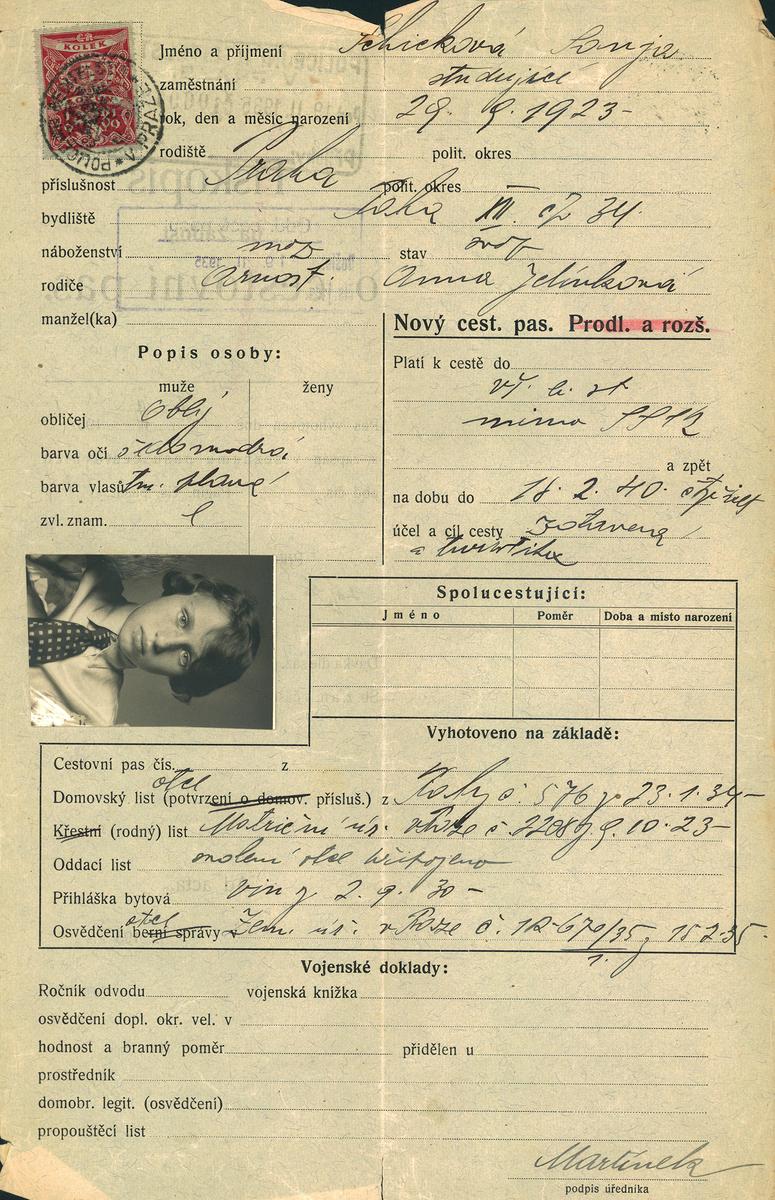 ČR
KOLEK
V PRAZE
Jméno a příjmení Schicková Sonja
zaměstnání studující
rok, den a měsíc narození 29. 9. 1923-
rodiště Praha polit. okres
příslušnost polit. okres
bydliště Praha XII. čp 34.
náboženství moz stav svob
rodiče Arnošt. Anna Jelínková
manžel(ka)
Nový cest. pas. Prodl. a rozš.
Popis osoby:
Platí k cestě do
muže ženy
vš. e. st
obličej oblý
mimo SSSR
barva očí šedomodrá
a zpět
barva vlasů tm. plavá
na dobu do 18. 2. 40.
zvl. znam.
účel a cíl cesty zotavená
a turistika
Spolucestující:
Jméno Poměr Doba a místo narození
Vyhotoveno na základě:
Cestovní pas čís. z
otce
Domovský list (potvrzení o domov. přísluš.) z č. 576 z 23. 1. 34-
Křestní (rodný) list Matriční úř. v Praze č. 2208 z 9. 10. 23-
Oddací list svolení otce připojeno
Přihláška bytová z 2. 9. 30-
otce
Osvědčení berní správy Zem. úř. v Praze č. 12-670/35 z 15. 2. 35-
1.
Vojenské doklady:
Ročník odvodu vojenská knížka
osvědčení dopl. okr. vel. v
hodnost a branný poměr přidělen u
prostředník
domobr. legit. (osvědčení)
propouštěcí list
Martinek
podpis úředníka